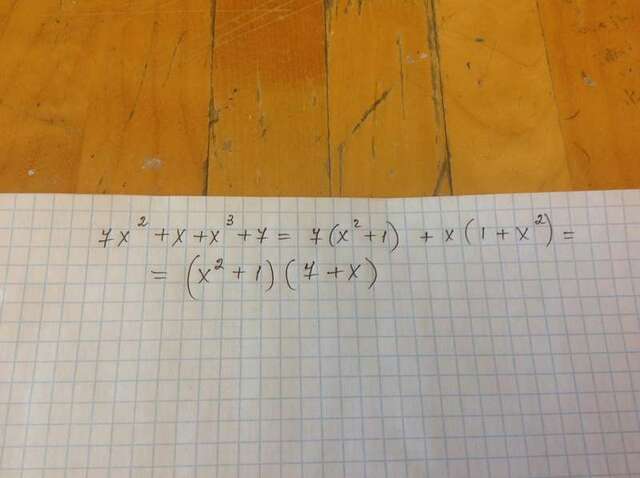 7x² + x + x³ + 7 = 7(x² + 1) + x(1 + x²) =
= (x² + 1)(7 + x)